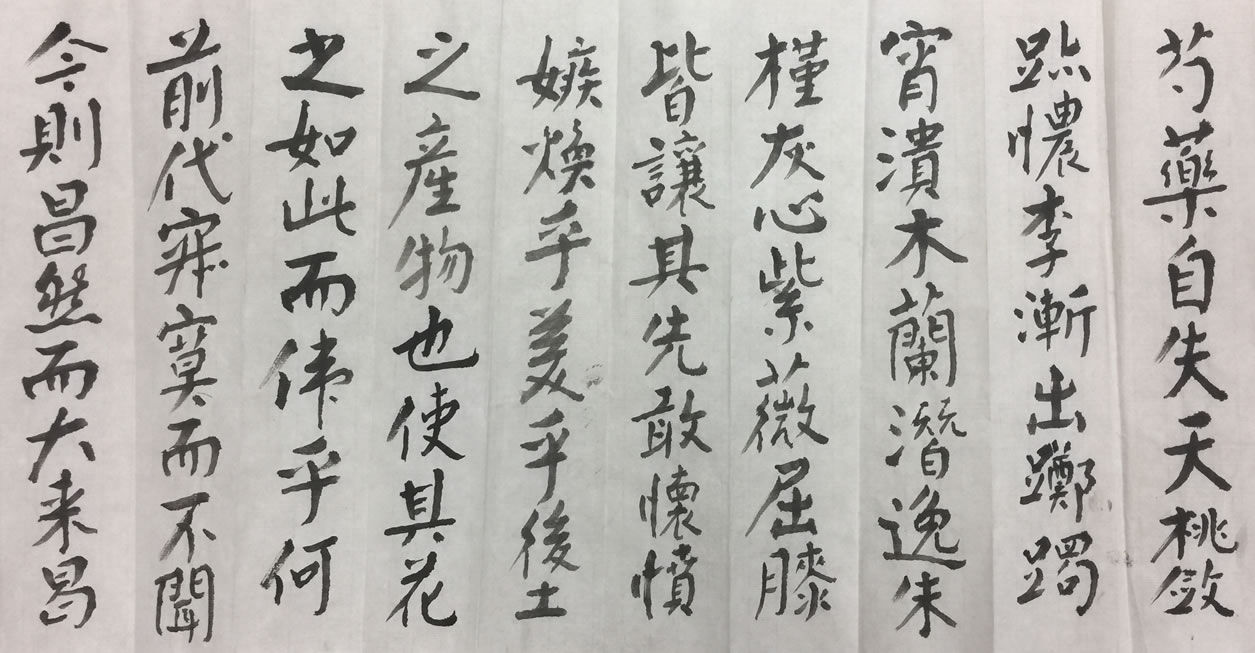 芍藥自失天桃斂
跡憹李漸出躑躅
宵潰木蘭潛逸朱
槿灰心紫薇屈膝
皆讓其先敢懷憤
嫉煥乎美乎後土
之產物也使其花
之如此而偉乎何
前代寂寞而不聞
今則昌然而大来曷